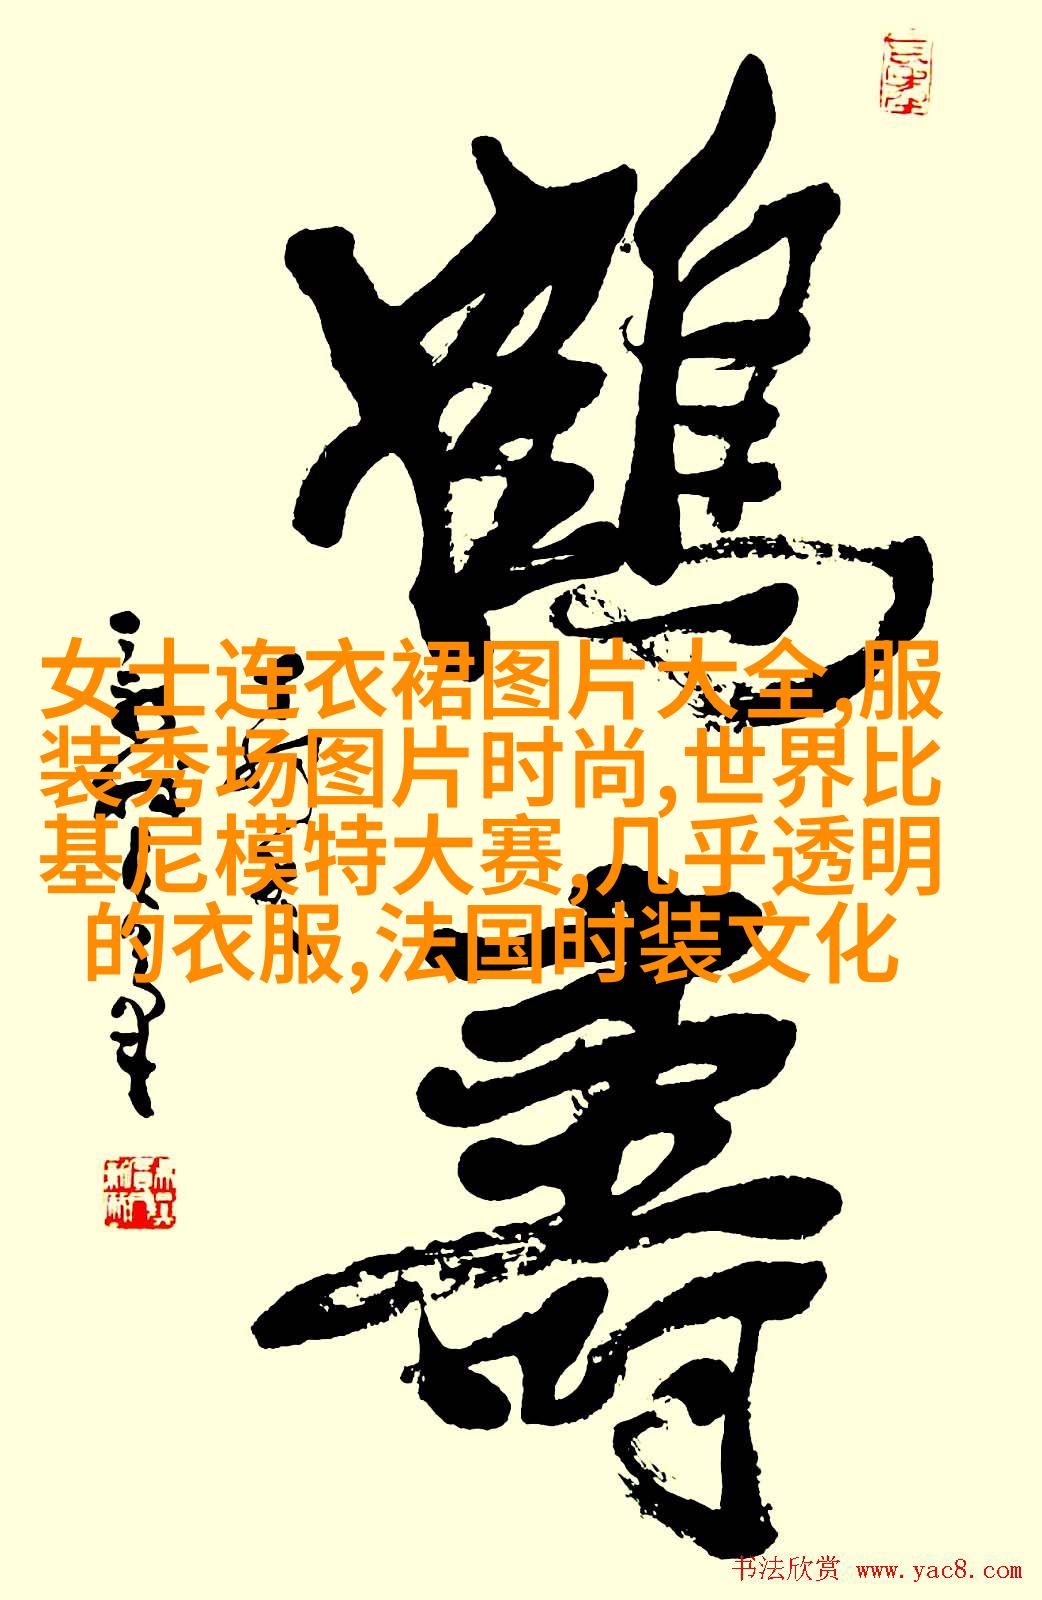 鹤寿
女士连衣裙图片大全,服
装秀场图片时尚,世界比
基尼模特大赛,几乎透明
的衣服,法国时装文化
书法欣赏 www.yac8.com